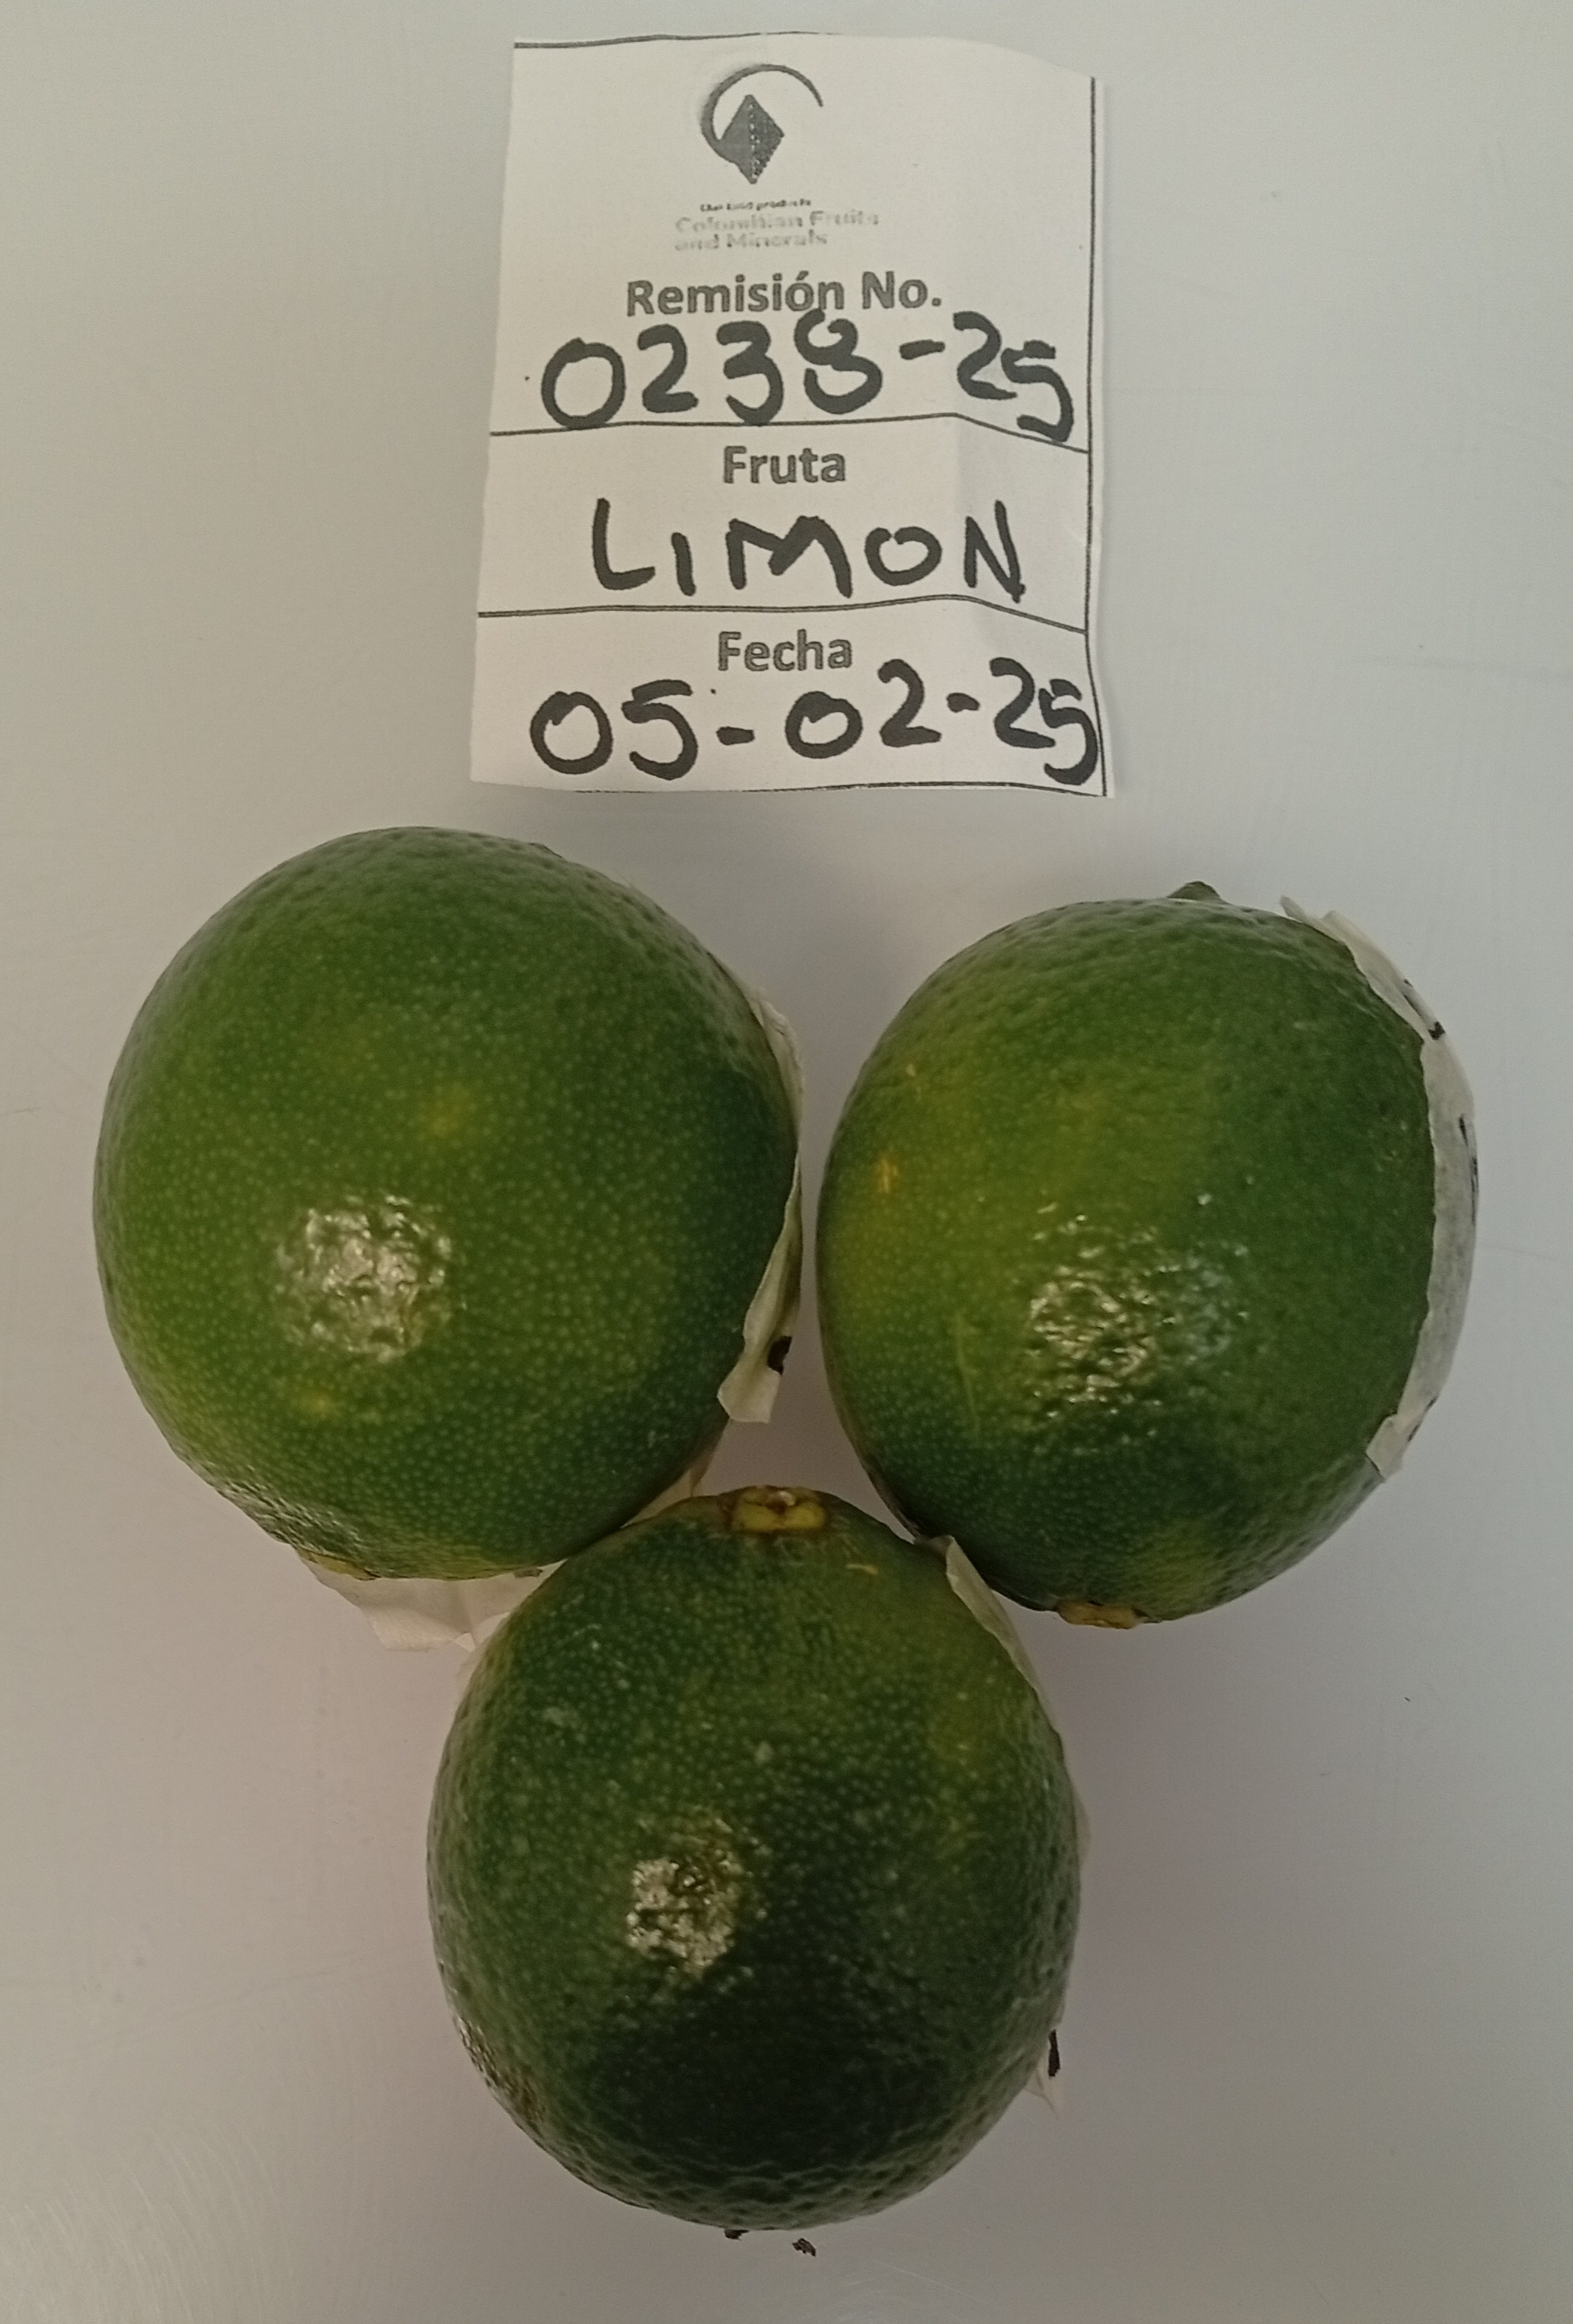 Colombian Fruits
and Minerals
Remisión No.
0238-25
Fruta
LIMON
Fecha
05-02-25